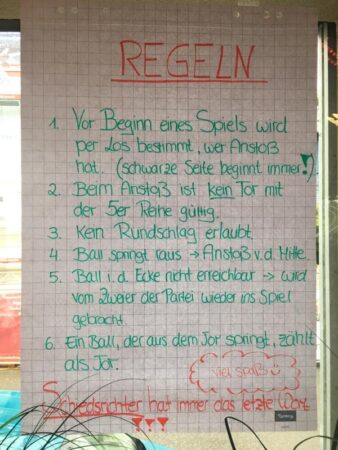 REGELN
1. Vor Beginn eines Spiels wird
per Los bestimmt, wer Anstoß
hat. (schwarze Seite beginnt immer!)
2. Beim Anstoß ist kein Tor mit
der 5er Reihe gültig.
3. Kein Rundschlag erlaubt.
4. Ball springt raus → Anstoß v. d. Mitte.
5. Ball i. d. Ecke nicht erreichbar → wird
vom Zweier der Partei wieder ins Spiel
gebracht.
6. Ein Ball, der aus dem Tor springt, zählt
als Tor.
Viel Spaß ☺
Schiedsrichter hat immer das letzte Wort
!!!